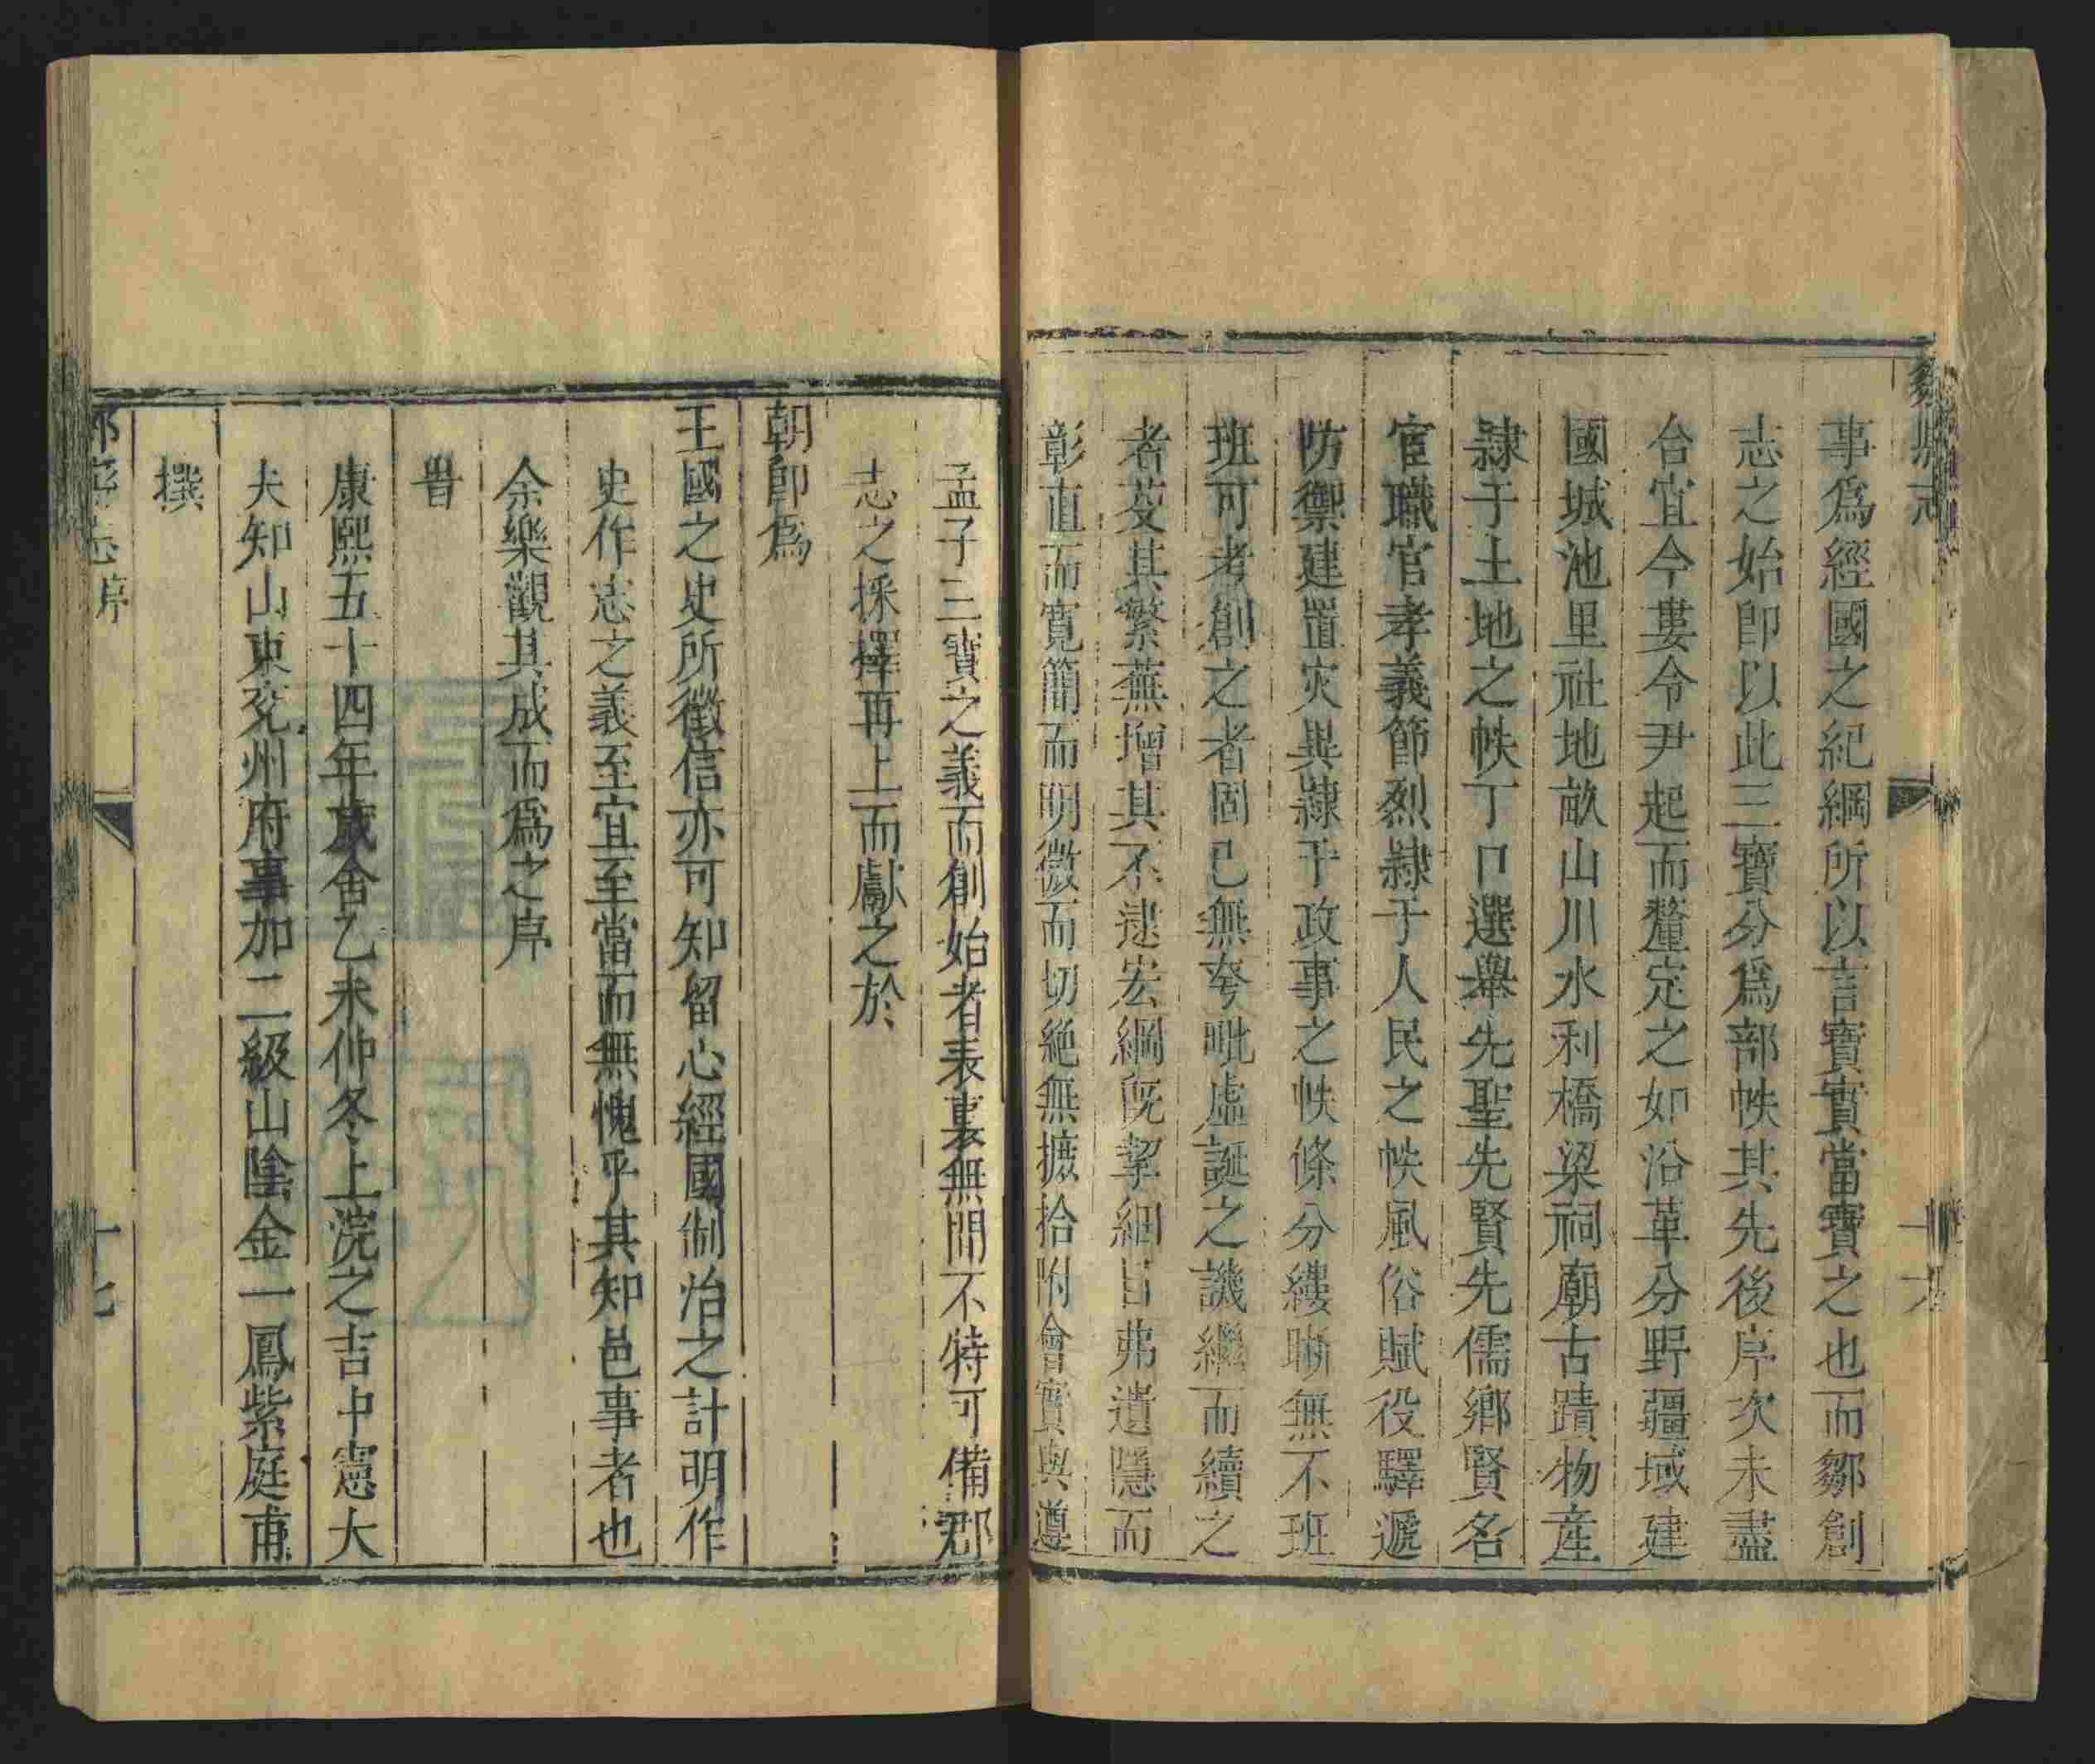 鄒縣志
事爲經國之紀綱所以言寶實當寶之也而鄒創
志之始卽以此三寶分爲部帙其先後序次未盡
合宜今婁令尹起而釐定之如沿革分野疆域建
國城池里社地畝山川水利橋梁祠廟古蹟物產
隷于土地之帙丁口選舉先聖先賢先儒鄉賢名
宦職官孝義節烈隷于人民之帙風俗賦役驛遞
防禦建置灾異隷于政事之帙條分縷晰無不班
班可考創之者固已無夸毗虛誕之譏繼而續之
者芟其繁蕪增其不逮宏綱旣挈細目弗遺隱而
彰直而寬簡而明微而切絶無摭拾附會實與遵
孟子三寶之義而創始者表裏無間不特可備郡
志之採擇再上而獻之於
朝卽爲
王國之史所徵信亦可知留心經國制治之計明作
史作志之義至宜至當而無愧乎其知邑事者也
余樂觀其成而爲之序
旹
康熙五十四年歲舍乙未仲冬上浣之吉中憲大
夫知山東兗州府事加二級山陰金一鳳紫庭甫
撰
序
十七